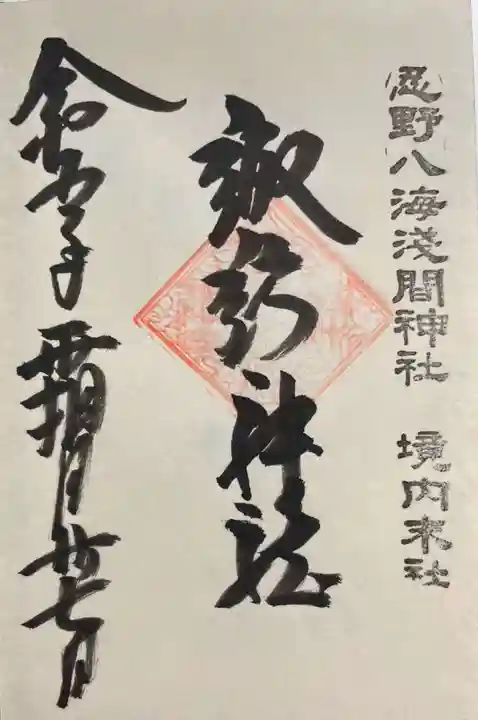 忍野八海淺間神社 境内末社
諏訪神社
令和年霜月廿七日